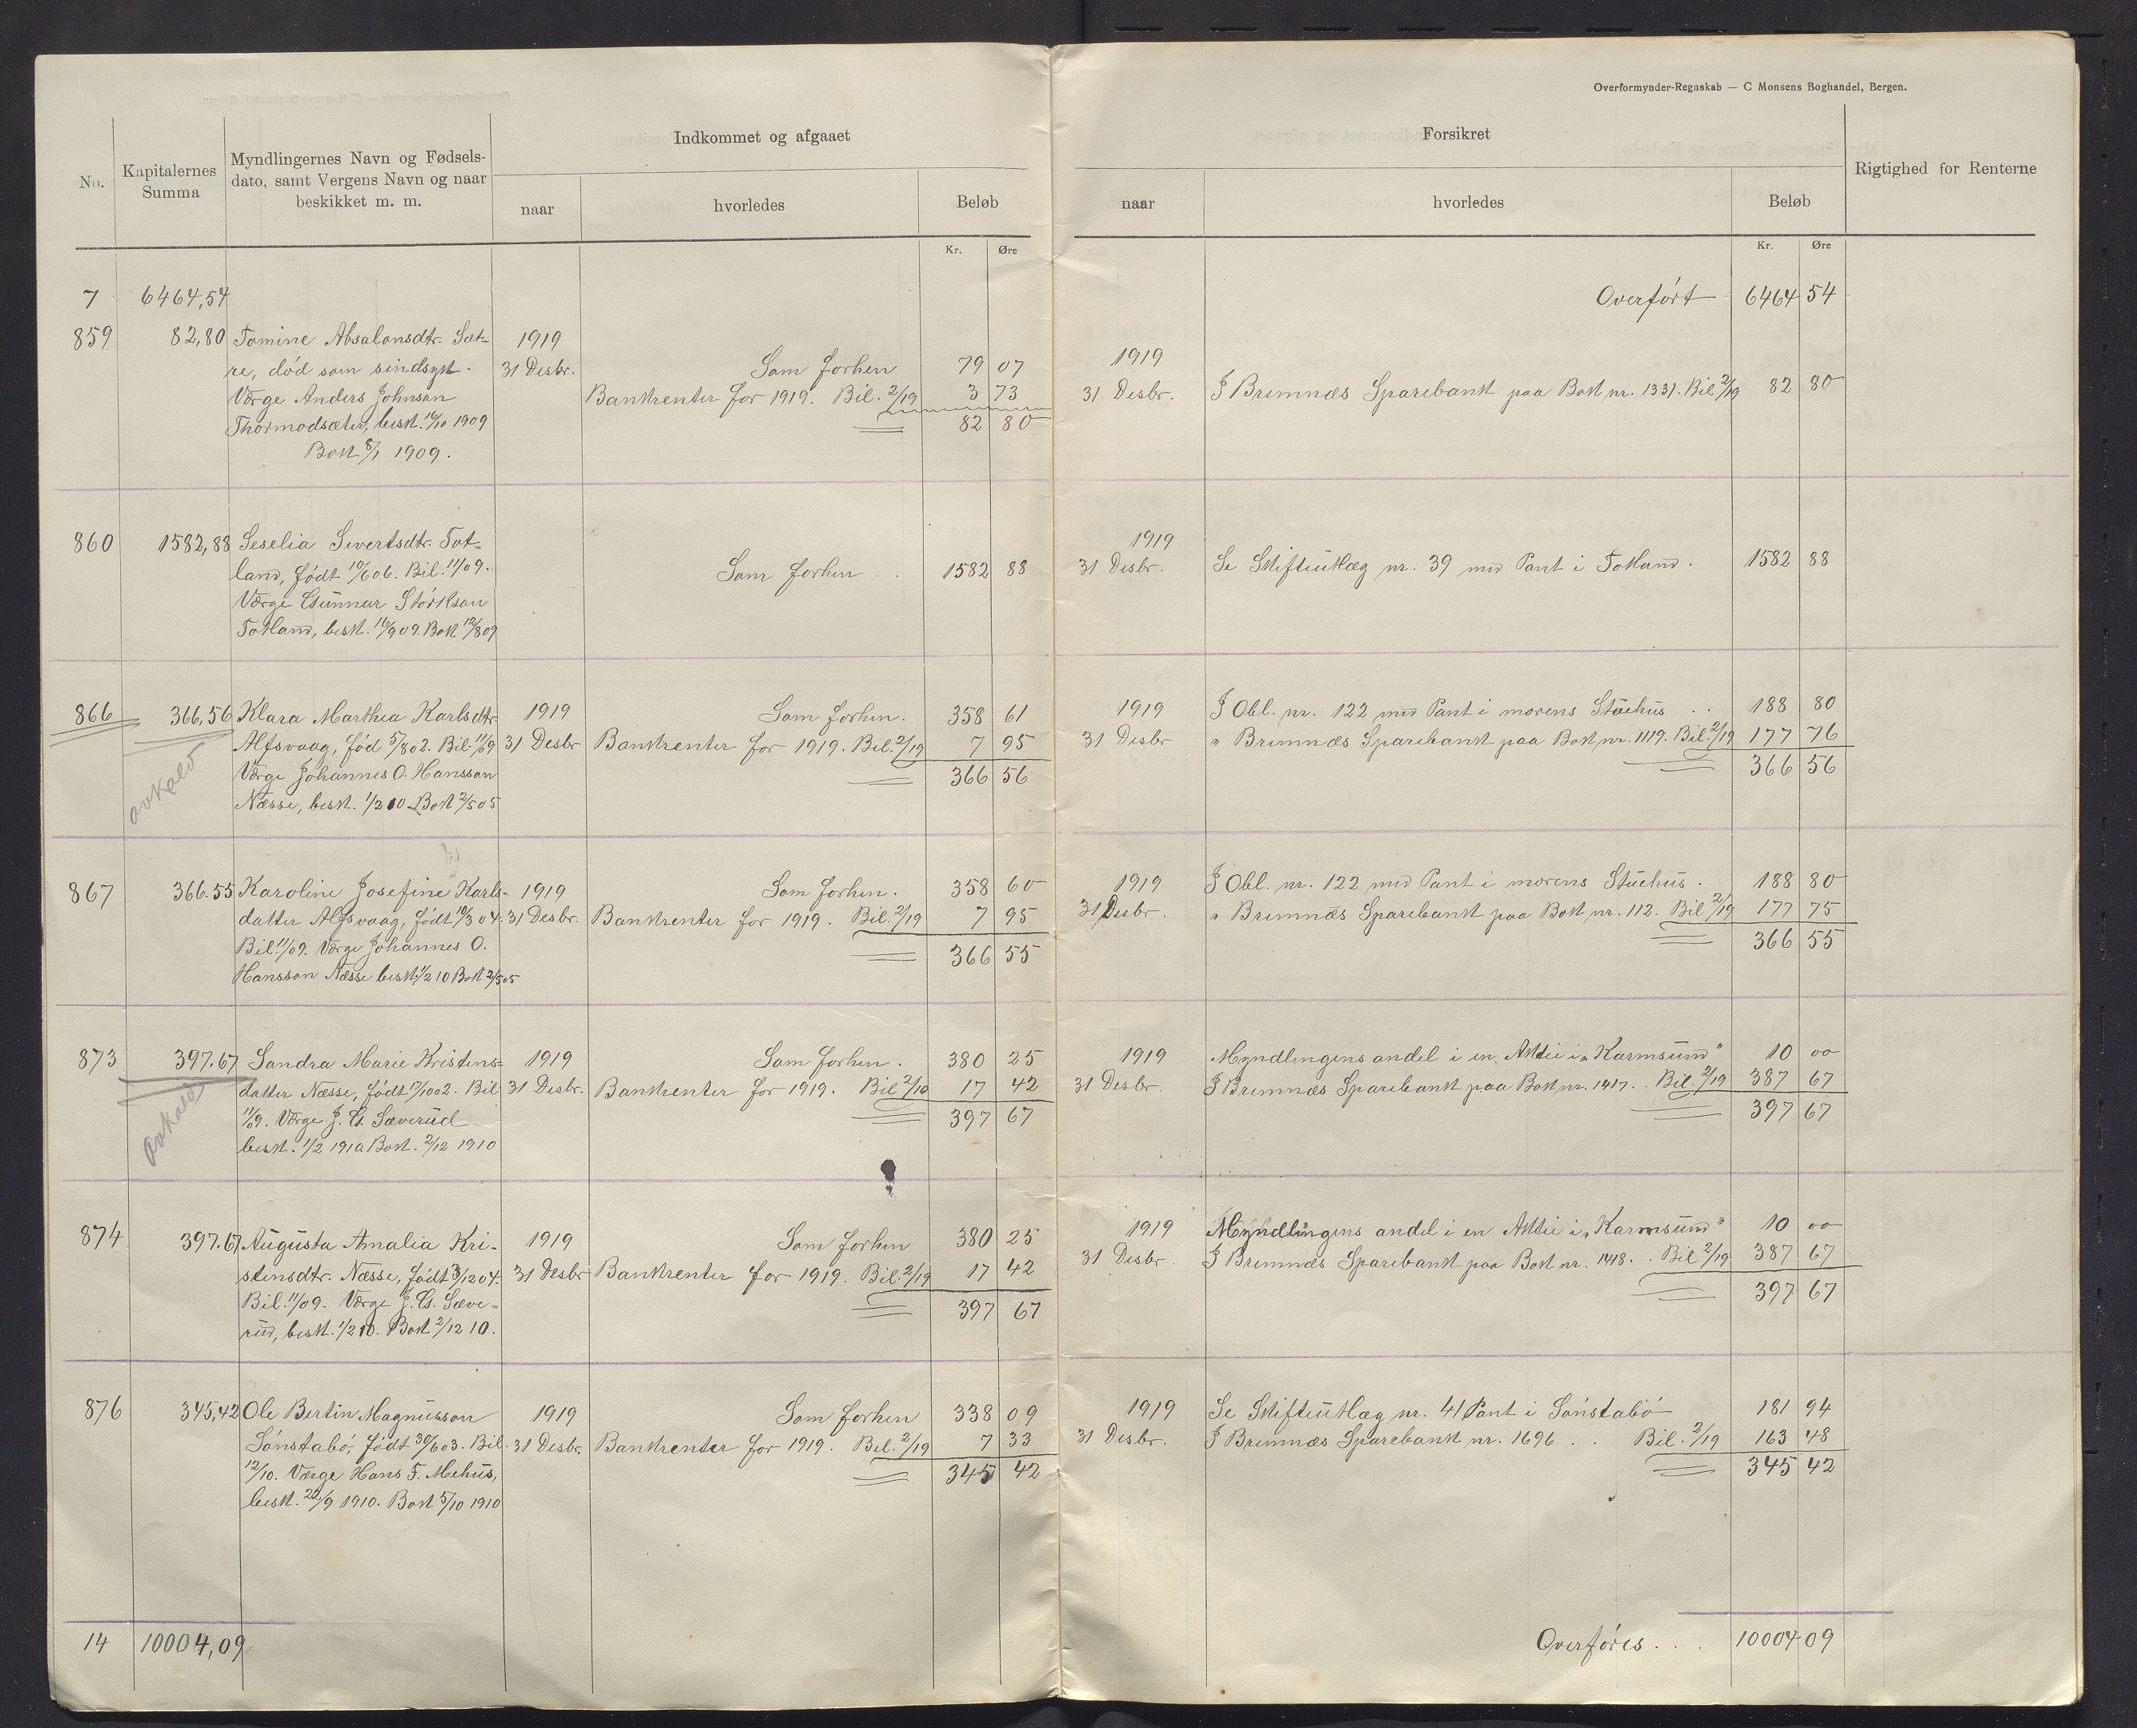 Overformynder-Regnskab — C Monsens Boghandel, Bergen.
No.
Kapitalernes Summa
Myndlingernes Navn og Fødsels-
dato, samt Vergens Navn og naar
beskikket m. m.
Indkommet og afgaaet
naar
hvorledes
Beløb
Kr. Øre
Forsikret
naar
hvorledes
Beløb
Kr. Øre
Rigtighed for Renterne
7 6464,54
Overført 6464 54
859 82,80 Tomine Absalonsdtr. Sæt- 1919
re, död som sindsyk. 31 Desbr. Som forhen 79 07
Værge Anders Johnson Bankrenter for 1919. Bil. 2/19 3 73
Thormodsæter, besk. 16/10 1909 82 80
Bok 8/1 1909.
1919
31 Desbr. I Bremnæs Sparebank paa Bok nr. 1331. Bil 2/19 82 80
860 1582,88 Seselia Sivertsdtr. Tot-
land, födt 10/6 06. Bil. 11/09. Som forhen . . 1582 88
Værge Gunnar Störkson
Totland, besk. 16/9 09. Bok 12/8 09
1919
31 Desbr. Se Skifteutlæg nr. 39 med Pant i Totland. 1582 88
866 366,56 Klara Marthea Karlsdtr. 1919 Som forhen. 358 61
Alfsvaag, föd 5/8 02. Bil. 11/09 31 Desbr Bankrenter for 1919. Bil. 2/19 7 95
Værge Johannes O. Hansson 366 56
Næsse, besk. 1/2 10. Bok 2/5 05
avkald
1919 I Obl. nr. 122 med Pant i morens Stuehus . . 188 80
31 Desbr " Bremnæs Sparebank paa Bok nr. 1119. Bil. 2/19 177 76
366 56
867 366.55 Karoline Josefine Karls- 1919 Som forhen. 358 60
datter Alfsvaag, födt 10/3 04. 31 Desbr. Bankrenter for 1919. Bil. 2/19 7 95
Bil. 11/09. Værge Johannes O. 366 55
Hansson Næsse besk. 1/2 10 Bok 2/5 05
1919 I Obl. nr. 122 med Pant i morens Stuehus. 188 80
31 Desbr. " Bremnæs Sparebank paa Bok nr. 112. Bil 2/19 177 75
366 55
873 397.67 Sandra Marie Kristens- 1919 Som forhen. 380 25
datter Næsse, födt 17/10 02. Bil 31 Desbr. Bankrenter for 1919. Bil 2/19 17 42
11/09. Værge J. G. Sæverud 397 67
besk. 1/2 1910 Bok. 2/12 1910
Avkald
1919 Myndlingens andel i en Aktie i "Karmsund" 10 00
31 Desbr. I Bremnæs Sparebank paa Bok nr. 1417. . Bil. 2/19 387 67
397 67
874 397.67 Augusta Amalia Kri- 1919 Som forhen 380 25
stensdtr. Næsse, födt 3/12 04. 31 Desbr Bankrenter for 1919. Bil. 2/19 17 42
Bil. 11/09. Værge J. G. Sæve- 397 67
rud, besk. 1/2 10. Bok 2/12 10.
1919 Myndlingens andel i en Aktie i "Karmsund" 10 00
31 Desbr. I Bremnæs Sparebank paa Bok nr. 1418. . Bil 2/19 387 67
397 67
876 345,42 Ole Bertin Magnusson 1919 Som forhen 338 09
Sönstabö, födt 30/6 03. Bil. 31 Desbr. Bankrenter for 1919. Bil. 2/19 7 33
12/10. Værge Hans T. Mehus, 345 42
besk. 22/9 1910. Bok 5/10 1910
1919 Se Skifteutlæg nr. 41 Pant i Sönstabö 181 94
31 Desbr. I Bremnæs Sparebank nr. 1696 . . Bil. 2/19 163 48
345 42
14 10004,09
Overföres . . . 10004 09